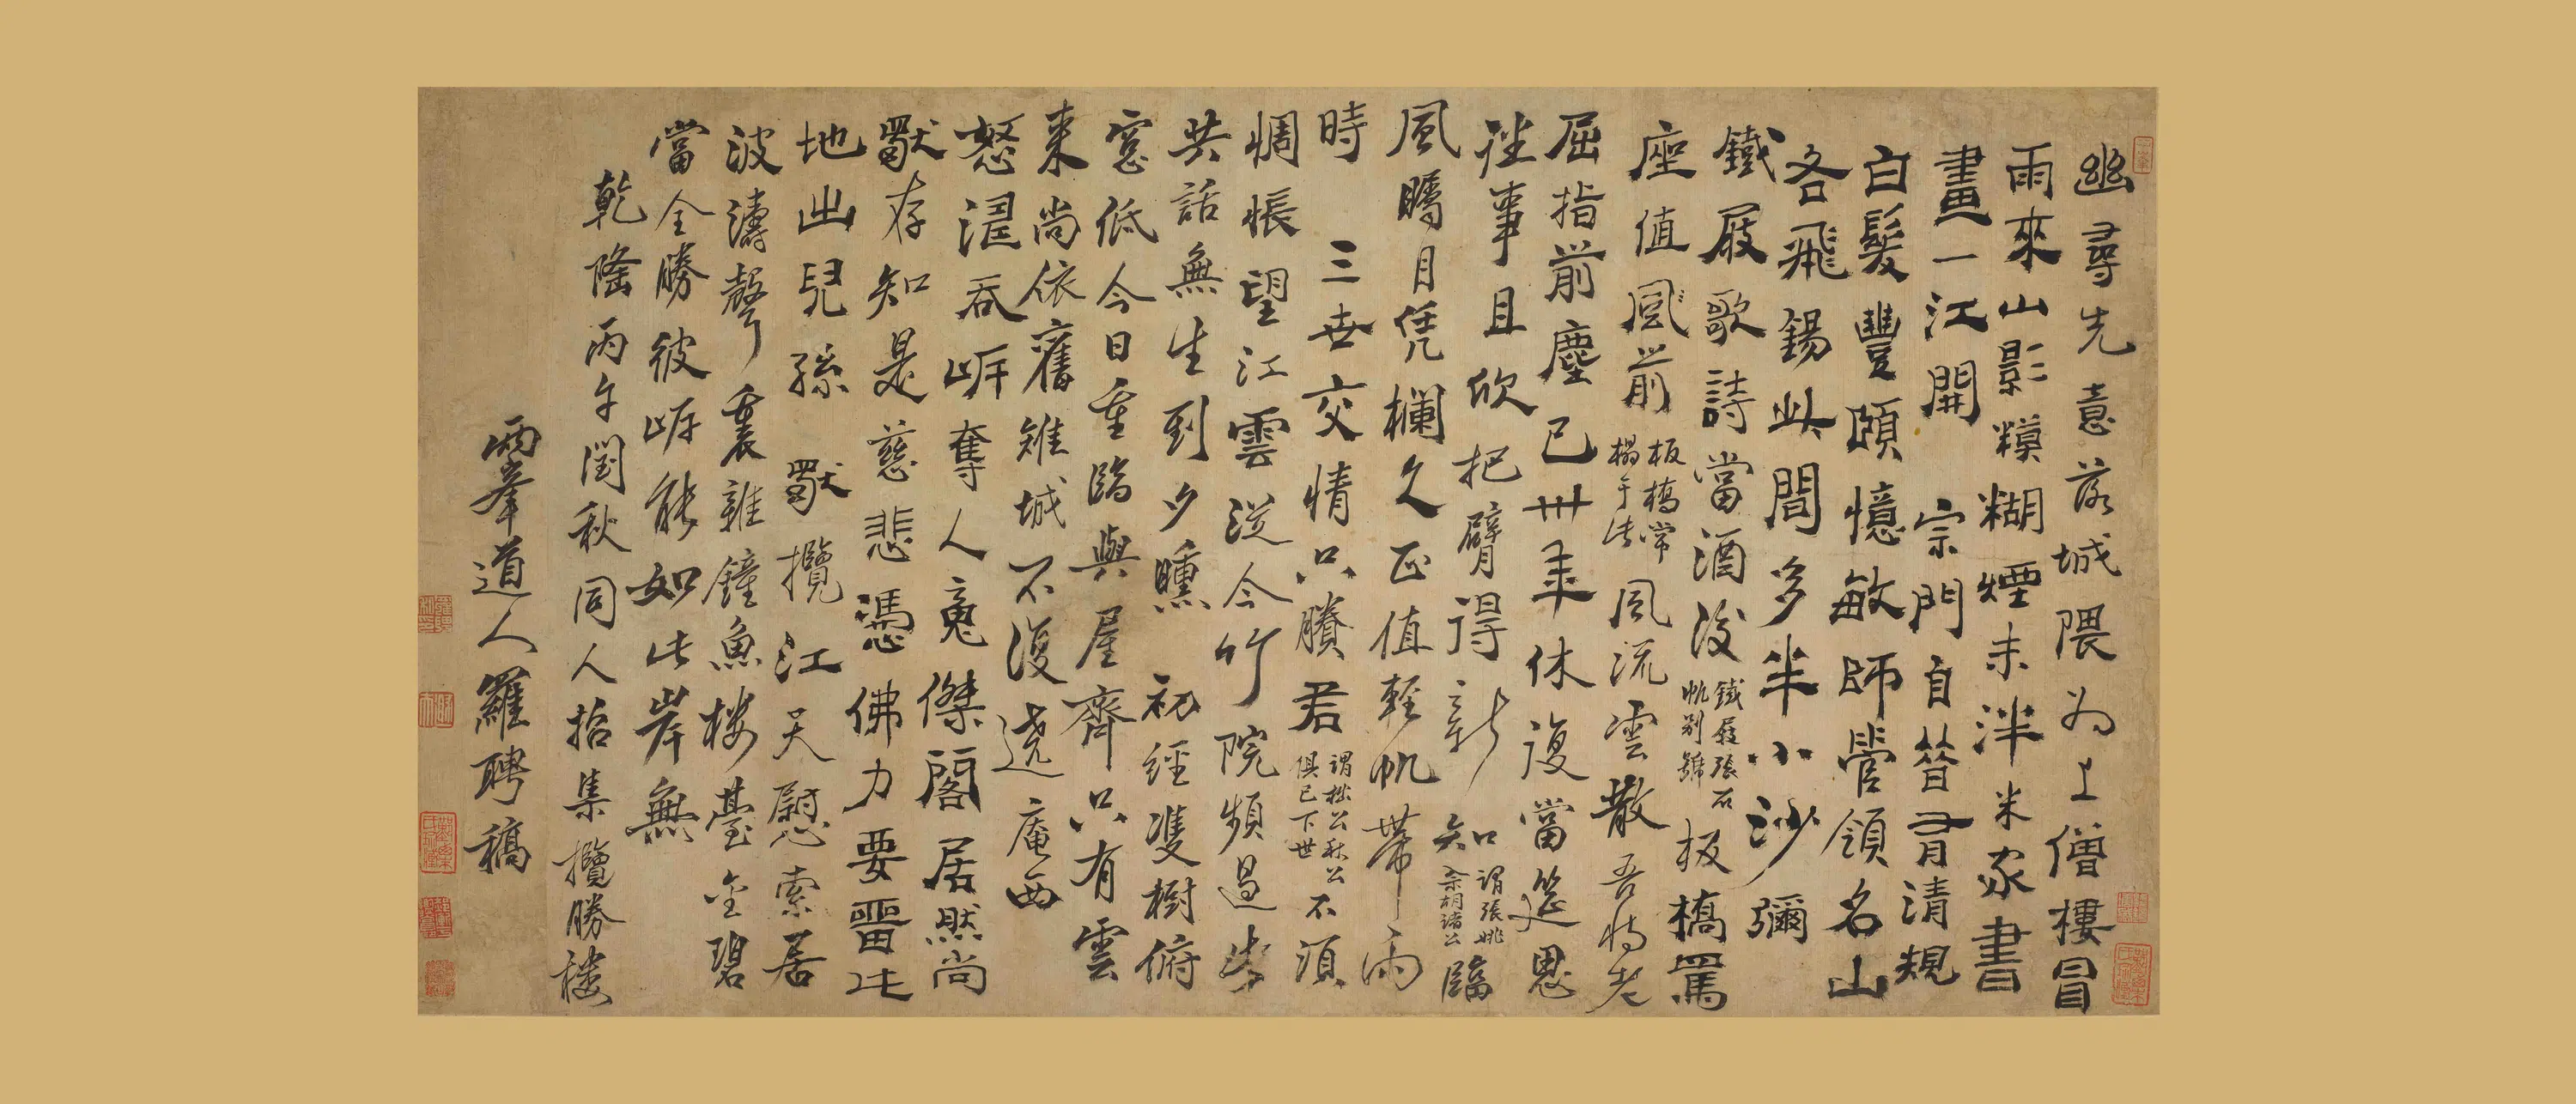 幽尋先意落城隈為上僧樓冒
雨來山影糢糊煙未泮米家書
畫一江開 宗門自昔有清規
白髮豐頤憶敏師管領名山
各飛錫此間多半小沙彌
鐵屐歌詩當酒後
鐵屐張石
帆別號
板橋罵
座值風前
板橋常
榻于此
風流雲散吾將老
屈指前塵已卅年休復當筵思
往事且欣把臂得新知
謂張姚
余胡諸公
臨
風矚目凭欄久正值輕帆帶雨
時 三世交情只賸君
謂松公秋公
俱已下世
不須
惆悵望江雲從今竹院頻過此
共話無生到夕曛 初經雙樹俯
窓低今日重臨與屋齊只有雲
来尚依舊雉城不復遶庵西
怒濤吞岸奪人魂傑閣居然尚
獸存知是慈悲憑佛力要畱此
地出兒孫 獸攬江天慰索居
波濤聲裏雜鐘魚樓臺金碧
當全勝彼岸能如此岸無
乾隆丙午閏秋同人招集攬勝樓
兩峯道人羅聘稿